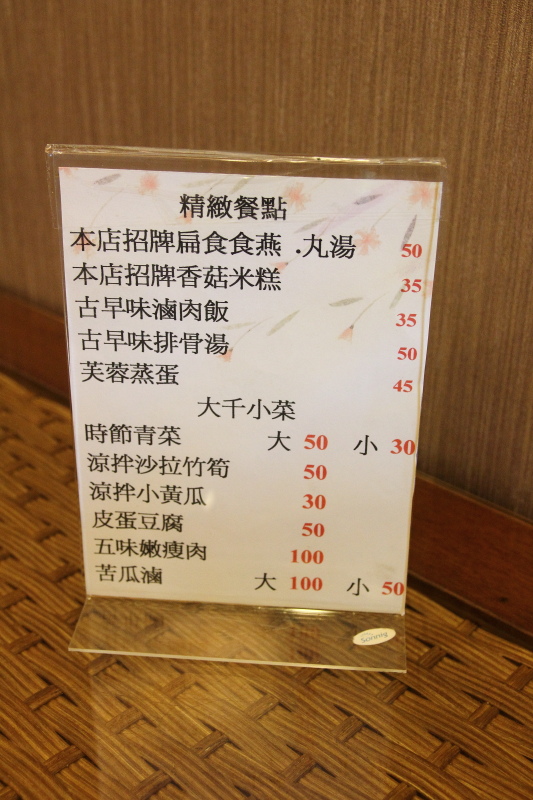 精緻餐點
本店招牌扁食食燕 .丸湯 50
本店招牌香菇米糕 35
古早味滷肉飯 35
古早味排骨湯 50
芙蓉蒸蛋 45
大千小菜
時節青菜 大 50 小 30
涼拌沙拉竹筍 50
涼拌小黃瓜 30
皮蛋豆腐 50
五味嫩瘦肉 100
苦瓜滷 大 100 小 50